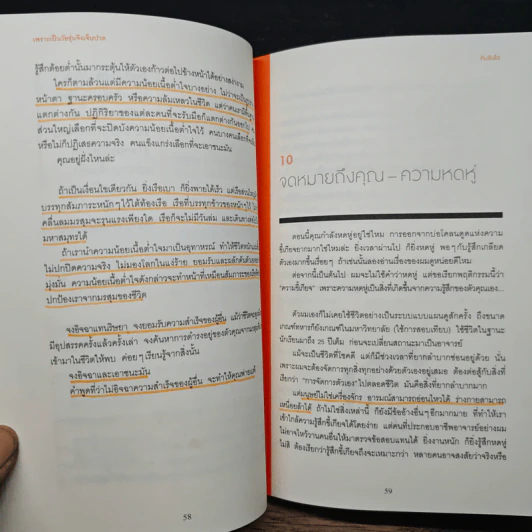 เพราะเป็นวัยรุ่นจึงเจ็บปวด
รู้สึกด้อยต่ำนั้นมากระตุ้นให้ตัวเองก้าวต่อไปข้างหน้าได้อย่างสง่างาม
ใครก็ตามล้วนแต่มีความน้อยเนื้อต่ำใจบางอย่าง ไม่ว่าจะเป็น
หน้าตา ฐานะครอบครัว หรือความล้มเหลวในชีวิต แต่ว่าคนเรานั้น
แตกต่างกัน ปฏิกิริยาของแต่ละคนที่จะรับมือก็แตกต่างกันออกไป
ส่วนใหญ่เลือกที่จะปิดบังความน้อยเนื้อต่ำใจไว้ คนบางคนเลือกที่
หรือไม่ก็ปฏิเสธความจริง คนแข็งแกร่งเลือกที่จะเอาชนะมัน
คุณอยู่ฝั่งไหนล่ะ
ถ้าเป็นเงื่อนไขเดียวกัน ยิ่งเรือเบา ก็ยิ่งพายได้เร็ว แต่เรือส่วนใหญ่
บรรทุกสัมภาระหนักๆ ไว้ใต้ท้องเรือ เรือที่บรรทุกข้าวของหนักไว้
คลื่นลมมรสุมจะรุนแรงเพียงใด เรือก็จะไม่มีวันล่ม และเดินทาง
มหาสมุทรได้
ถ้าเรานำความน้อยเนื้อต่ำใจมาเป็นอุทาหรณ์ ทำให้ชีวิต
ไม่ปกปิดความจริง ไม่มองโลกในแง่ร้าย ยอมรับและผลักดันตัวเอง
มุ่งมั่น ความน้อยเนื้อต่ำใจดังกล่าวจะทำหน้าที่เหมือนสัมภาระของ
ปกป้องเราจากมรสุมของชีวิต
จงอิจฉาแทนริษยา จงยอมรับความสำเร็จของผู้อื่น แม้ว่าชีวิต
มีอุปสรรคครั้งแล้วครั้งเล่า จงค้นหาการดำรงอยู่ของตัวคุณจาก
เข้ามาในชีวิตให้พบ ค่อยๆ เรียนรู้จากสิ่งนั้น
จงอิจฉาและเอาชนะมัน
คำพูดที่ว่าไม่อิจฉาความสำเร็จของผู้อื่น จะทำให้คุณพ่ายแพ้
58
10
จดหมายถึงคุณ – ความหดหู่
ตอนนี้คุณกำลังหดหู่อยู่ใช่ไหม การออกจากบ่อโคลนดูดแห่งความ
ขี้เกียจยากมากใช่ไหมล่ะ ยิ่งเวลาผ่านไป ก็ยิ่งหดหู่ พอๆ กับรู้สึกเกลียด
ตัวเองมากขึ้นเรื่อยๆ ถ้าเช่นนั้นลองอ่านเรื่องของผมดูหน่อยดีไหม
ต่อจากนี้เป็นต้นไป ผมจะไม่ใช้คำว่าหดหู่ แต่ขอเรียกพฤติกรรมนี้ว่า
"ความขี้เกียจ" เพราะความหดหู่เป็นสิ่งที่เกิดขึ้นจากความรู้สึกของตัวคุณเอง...
ตัวผมเองก็ไม่เคยใช้ชีวิตอย่างเป็นระบบแบบแผนดูสักครั้ง ถึงขนาด
เกณฑ์ทหารก็ยังเกณฑ์ในมหาวิทยาลัย (ใช้การสอบเทียบ) ใช้ชีวิตในฐานะ
นักเรียนมาถึง 25 ปีเต็ม ก่อนจะเปลี่ยนสถานะมาเป็นอาจารย์
แม้จะเป็นชีวิตที่โชคดี แต่ก็มีช่วงเวลาที่ยากลำบากซ่อนอยู่ด้วย นั่น
เพราะผมจะต้องจัดการทุกสิ่งทุกอย่างด้วยตัวเองอยู่เสมอ ต้องต่อสู้กับสิ่งที่
เรียกว่า "การจัดการตัวเอง" ไปตลอดชีวิต มันคือสิ่งที่ยากลำบากมาก
แต่มนุษย์ไม่ใช่เครื่องจักร อารมณ์สามารถอ่อนไหวได้ ร่างกายสามารถ
เหนื่อยล้าได้ ถ้าไม่ใช่สิ่งเหล่านี้ ก็ยังมีข้ออ้างอื่นๆ อีกมากมาย ที่ทำให้เรา
เข้าใกล้ความรู้สึกขี้เกียจได้โดยง่าย แต่คนที่ประกอบอาชีพอาจารย์อย่างผม
ไม่อาจไหว้วานคนอื่นให้มาตรวจข้อสอบแทนได้ ยิ่งงานหนัก ก็ยิ่งรู้สึกหดหู่
ไม่สิ ต้องเรียกว่ารู้สึกขี้เกียจถึงจะเหมาะกว่า หลายคนอาจสงสัยว่าจริงหรือ
59